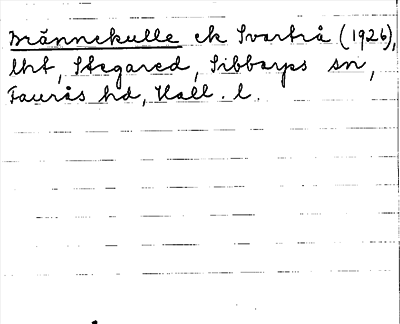 Männekulle ek Svartrå (1926),
lht, Stegared, Sibbarps sn,
Faurås hd, Hall. l.